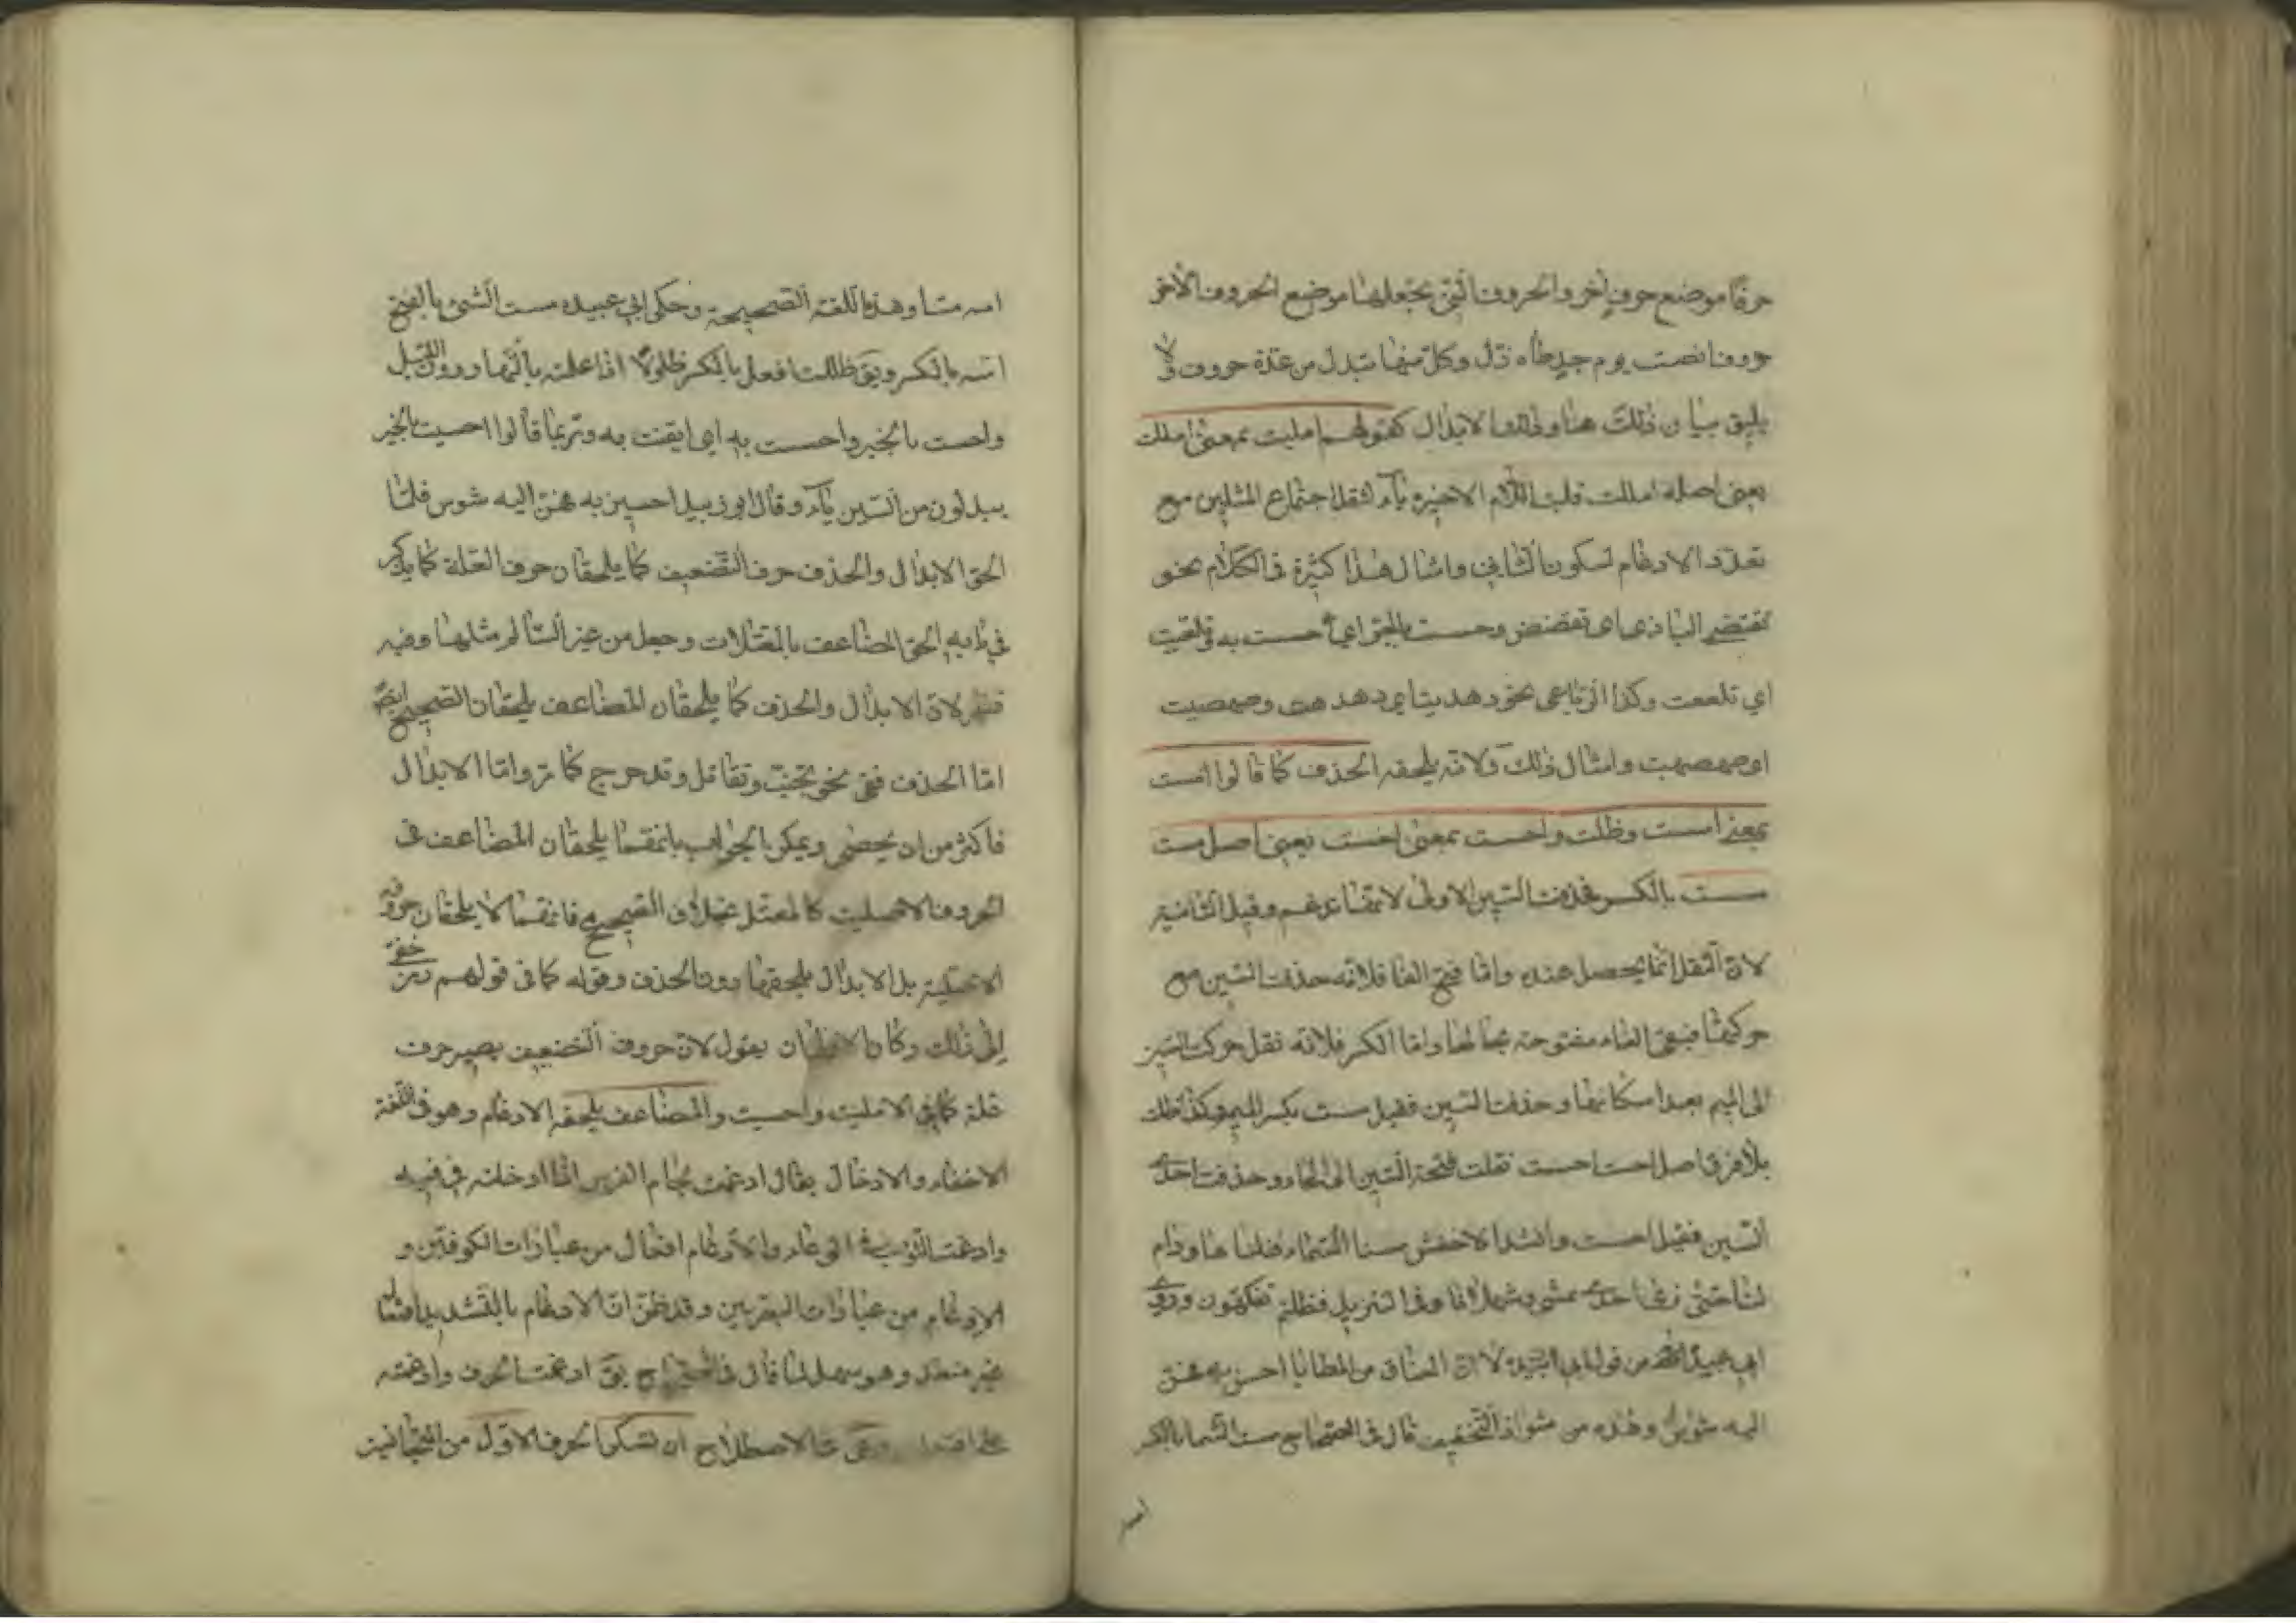 حرفا موضع حرف اخر والحروف التى تجعلها موضع الحروف الاخر
حروف انصت يوم جد طاه زل وكل منها تبدل من عدة حروف ولا
يليق بيان ذلك هنا وذلك الابدال كقولهم امليت بمعنى امللت
يعنى اصله امللت قلبت اللام الاخيرة ياء لثقل اجتماع المثلين مع
تعذر الادغام لسكون الثانى وامثال هذا كثيرة فى الكلام نحو
تقضى البازى اى تقضض وحسيت بالخبر اى حسست به وتلعيت
اى تلععت وكذا الرباعى نحو دهديت اى دهدهت وصهصيت
اى صهصهت وامثال ذلك ولانه يلحقه الحذف كما قالوا مست
بمعنى مسست وظلت واحست بمعنى احسست يعنى اصل مست
مسست بالكسر فحذفت السين الاولى لانها تدغم وقيل الثانية
لان الثقل انما يحصل عنده واما فتح الفا فلانه حذفت السين مع
حركتها فبقى الفاء مفتوحة بحالها واما الكسر فلانه نقل حركت السين
الى الميم بعد اسكانها وحذفت السين فقيل مست بكسر الميم وكذا ظلت
بلا فرق اصل احست احسست نقلت فتحة السين الى الحاء وحذفت احدى
السين فقيل احست وانشد الاخفش مسنا السماء فنلناها ودام
لنا حتى نرى احدا يمشى وثهلانا وفى التنزيل فظلتم تفكهون وروى
ابى عبيدة من قول ابى زبيد الا ان العتاق من المطايا احسن به فهن
اليه شوس وهذه من شواذ التخفيف قال فى الصحاح مست الشئ بالكسر
امسه
امسه مسا وهذه اللغة الصحيحة وحكى ابى عبيده مست الشئ بالفتح
امسه بالكسر ويق ظللت افعل بالكسر ظلولا اذا عملته بالنهار دون الليل
واحست بالخبر واحست به اى ايقنت به وربما قالوا احسيت بالخبر
يبدلون من السين ياء وقال ابو زبيد احسين به فهن اليه شوس فلما
الحق الابدال والحذف حرف التضعيف كما يلحقان حرف العلة كما يذكر
فى بابه الحق المضاعف بالمعتلات وجعل من غير السالم مثلها وفيه
نظر لان الابدال والحذف كما يلحقان المضاعف يلحقان الصحيح ايضا
اما الحذف ففى نحو تجنب وتقاتل وتدحرج كما مر واما الابدال
فاكثر من ان يحصى ويمكن الجواب بانهما يلحقان المضاعف فى
الحروف الاصلية كالمعتل بخلاف الصحيح فانهما لا يلحقان حروفه
الاصلية بل الابدال يلحقها دون الحذف وقوله كما فى قولهم
الى ذلك وكان يقول لان حروف التضعيف يصير حرف
علة كما فى امليت واحسيت والمضاعف يلحقه الادغام وهو فى اللغة
الاخفاء والادخال يقال ادغمت لجام الفرس اذا ادخلته فى فيه
وادغمت الثوب فى الوعاء والادغام افعال من عبارات الكوفيين و
الادغام من عبارات البصريين وقد ظن ان الادغام بالتشديد افتعال
غير متعد وهو سهو لما قال فى الصحاح يق ادغمت الحرف وادغمته
على افتعلته وفى الاصطلاح ان تسكن الحرف الاول من المتجانسين